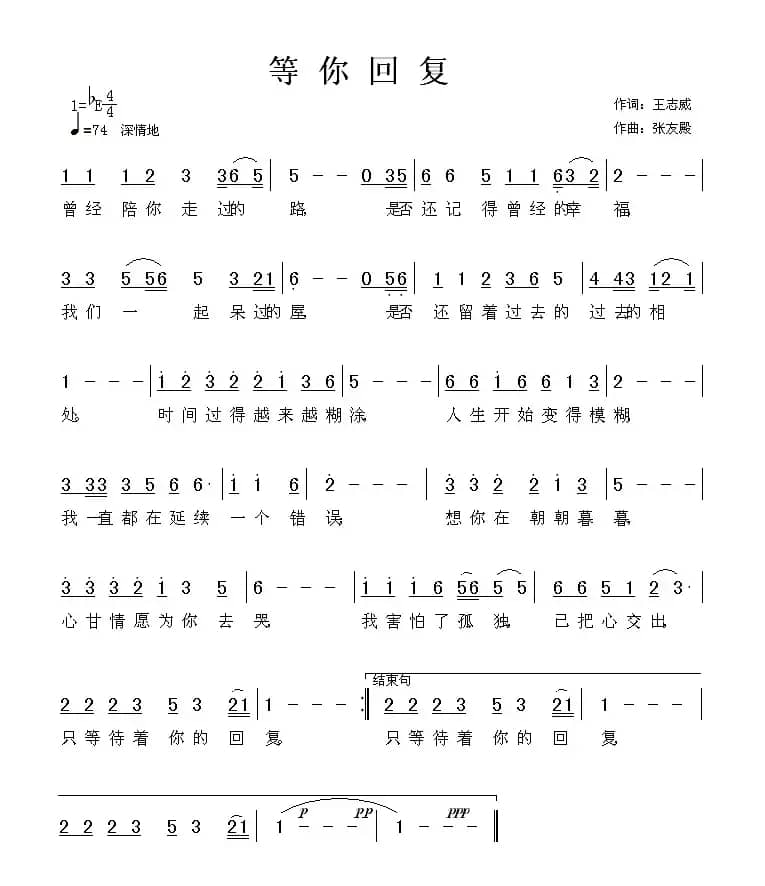 等你回复
1=♭E 4/4
作词：王志威
♩=74 深情地
作曲：张友殿
1 1 1 2 3 36 5 | 5 - - 0 35 | 6 6 5 1 1 63 2 | 2 - - - |
曾经 陪你 走 过的 路， 是否 还记 得曾经 的幸 福，
3 3 5 56 5 3 21 | 6 - - 0 56 | 1 1 2 3 6 5 | 4 43 12 1 |
我们 一 起 呆过的 屋， 是否 还留着过去的 过去的相
1 - - - | 1 2 3 2 2 1 3 6 | 5 - - - | 6 6 1 6 6 1 3 | 2 - - - |
处， 时间过得越来越糊 涂， 人生开始变得模 糊，
3 33 3 5 6 6· | 1 1 6 | 2 - - - | 3 3 2 2 1 3 | 5 - - - |
我一直都在延续 一个 错 误， 想你在 朝朝暮 暮，
3 3 3 2 1 3 5 | 6 - - - | 1 1 1 6 56 5 5 | 6 6 5 1 2 3· |
心甘情愿为你 去 哭， 我害怕了孤 独， 已把心交出，
结束句
2 2 2 3 5 3 21 | 1 - - - :‖ 2 2 2 3 5 3 21 | 1 - - - |
只等待着 你的 回 复， 只等待着 你的 回 复，
2 2 2 3 5 3 21 | 1 - - - | 1 - - - ‖
p pp ppp